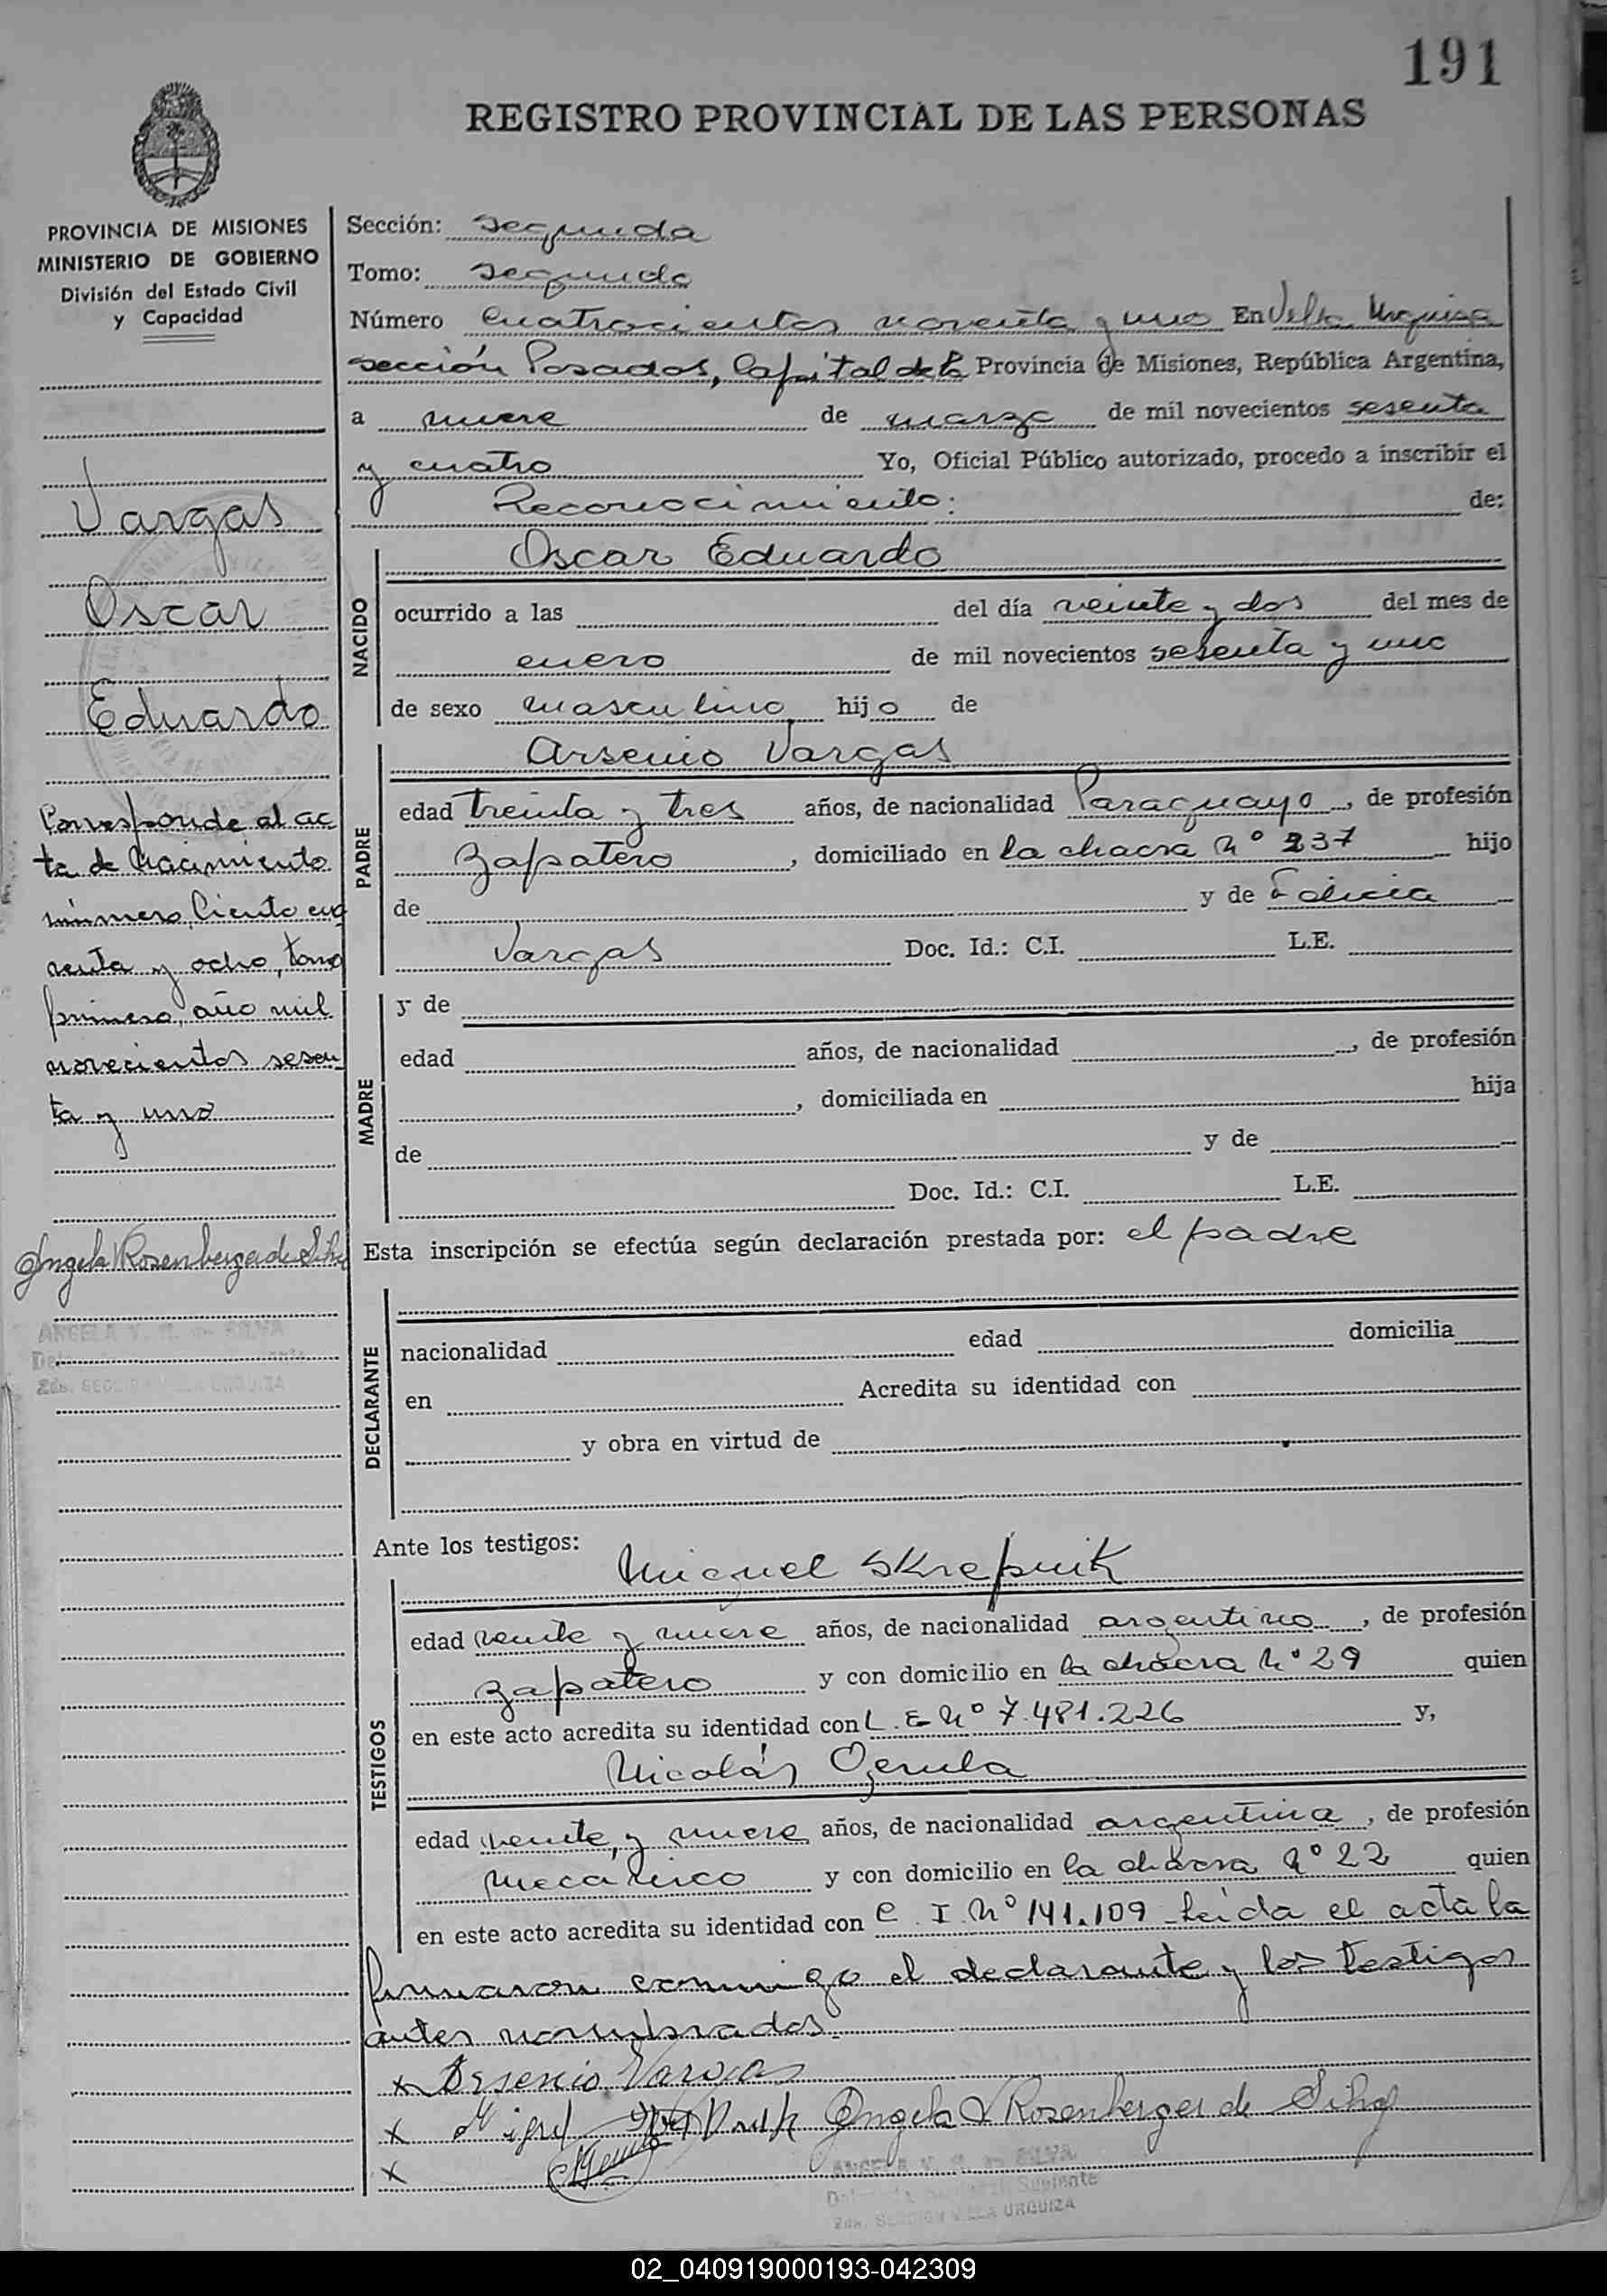 191
REGISTRO PROVINCIAL DE LAS PERSONAS
PROVINCIA DE MISIONES
MINISTERIO DE GOBIERNO
División del Estado Civil
y Capacidad
Vargas
Oscar
Eduardo
Corresponde al ac
ta de Nacimiento
número, Ciento cua
renta y ocho, tomo
primero, año mil
novecientos sesen
ta y uno
Angela Rosenberger de Silva
ANGELA V. R. de SILVA
2da. SECCION VILLA URQUIZA
Sección: Segunda
Tomo: Segundo
Número Cuatrocientos noventa y uno En Villa Urquiza
sección Posadas, Capital de la Provincia de Misiones, República Argentina,
a nueve de marzo de mil novecientos sesenta
y cuatro Yo, Oficial Público autorizado, procedo a inscribir el
Reconocimiento: de:
NACIDO
Oscar Eduardo
ocurrido a las del día veinte y dos del mes de
enero de mil novecientos sesenta y uno
de sexo masculino hijo de
PADRE
Arsenio Vargas
edad treinta y tres años, de nacionalidad Paraguayo, de profesión
Zapatero, domiciliado en la chacra Nº 237 hijo
de y de Felicia
Vargas Doc. Id.: C.I. L.E.
MADRE
y de
edad años, de nacionalidad , de profesión
, domiciliada en hija
de y de
Doc. Id.: C.I. L.E.
Esta inscripción se efectúa según declaración prestada por: el padre
DECLARANTE
nacionalidad edad domicilia
en Acredita su identidad con
y obra en virtud de
Ante los testigos:
TESTIGOS
Miguel Skrepnik
edad veinte y nueve años, de nacionalidad argentino, de profesión
zapatero y con domicilio en la chacra Nº 29 quien
en este acto acredita su identidad con L.E Nº 7.481.226 y,
Nicolás
edad veinte y nueve años, de nacionalidad argentina, de profesión
mecánico y con domicilio en la chacra Nº 22 quien
en este acto acredita su identidad con C.I. Nº 141.109 Leida el acta la
firmaron conmigo el declarante y los testigos
antes nombrados.
x Arsenio Vargas
x Miguel Angela V Rosenberger de Silva
x
ANGELA V. R. de SILVA
Suplente
2da. SECCION VILLA URQUIZA
02_040919000193-042309